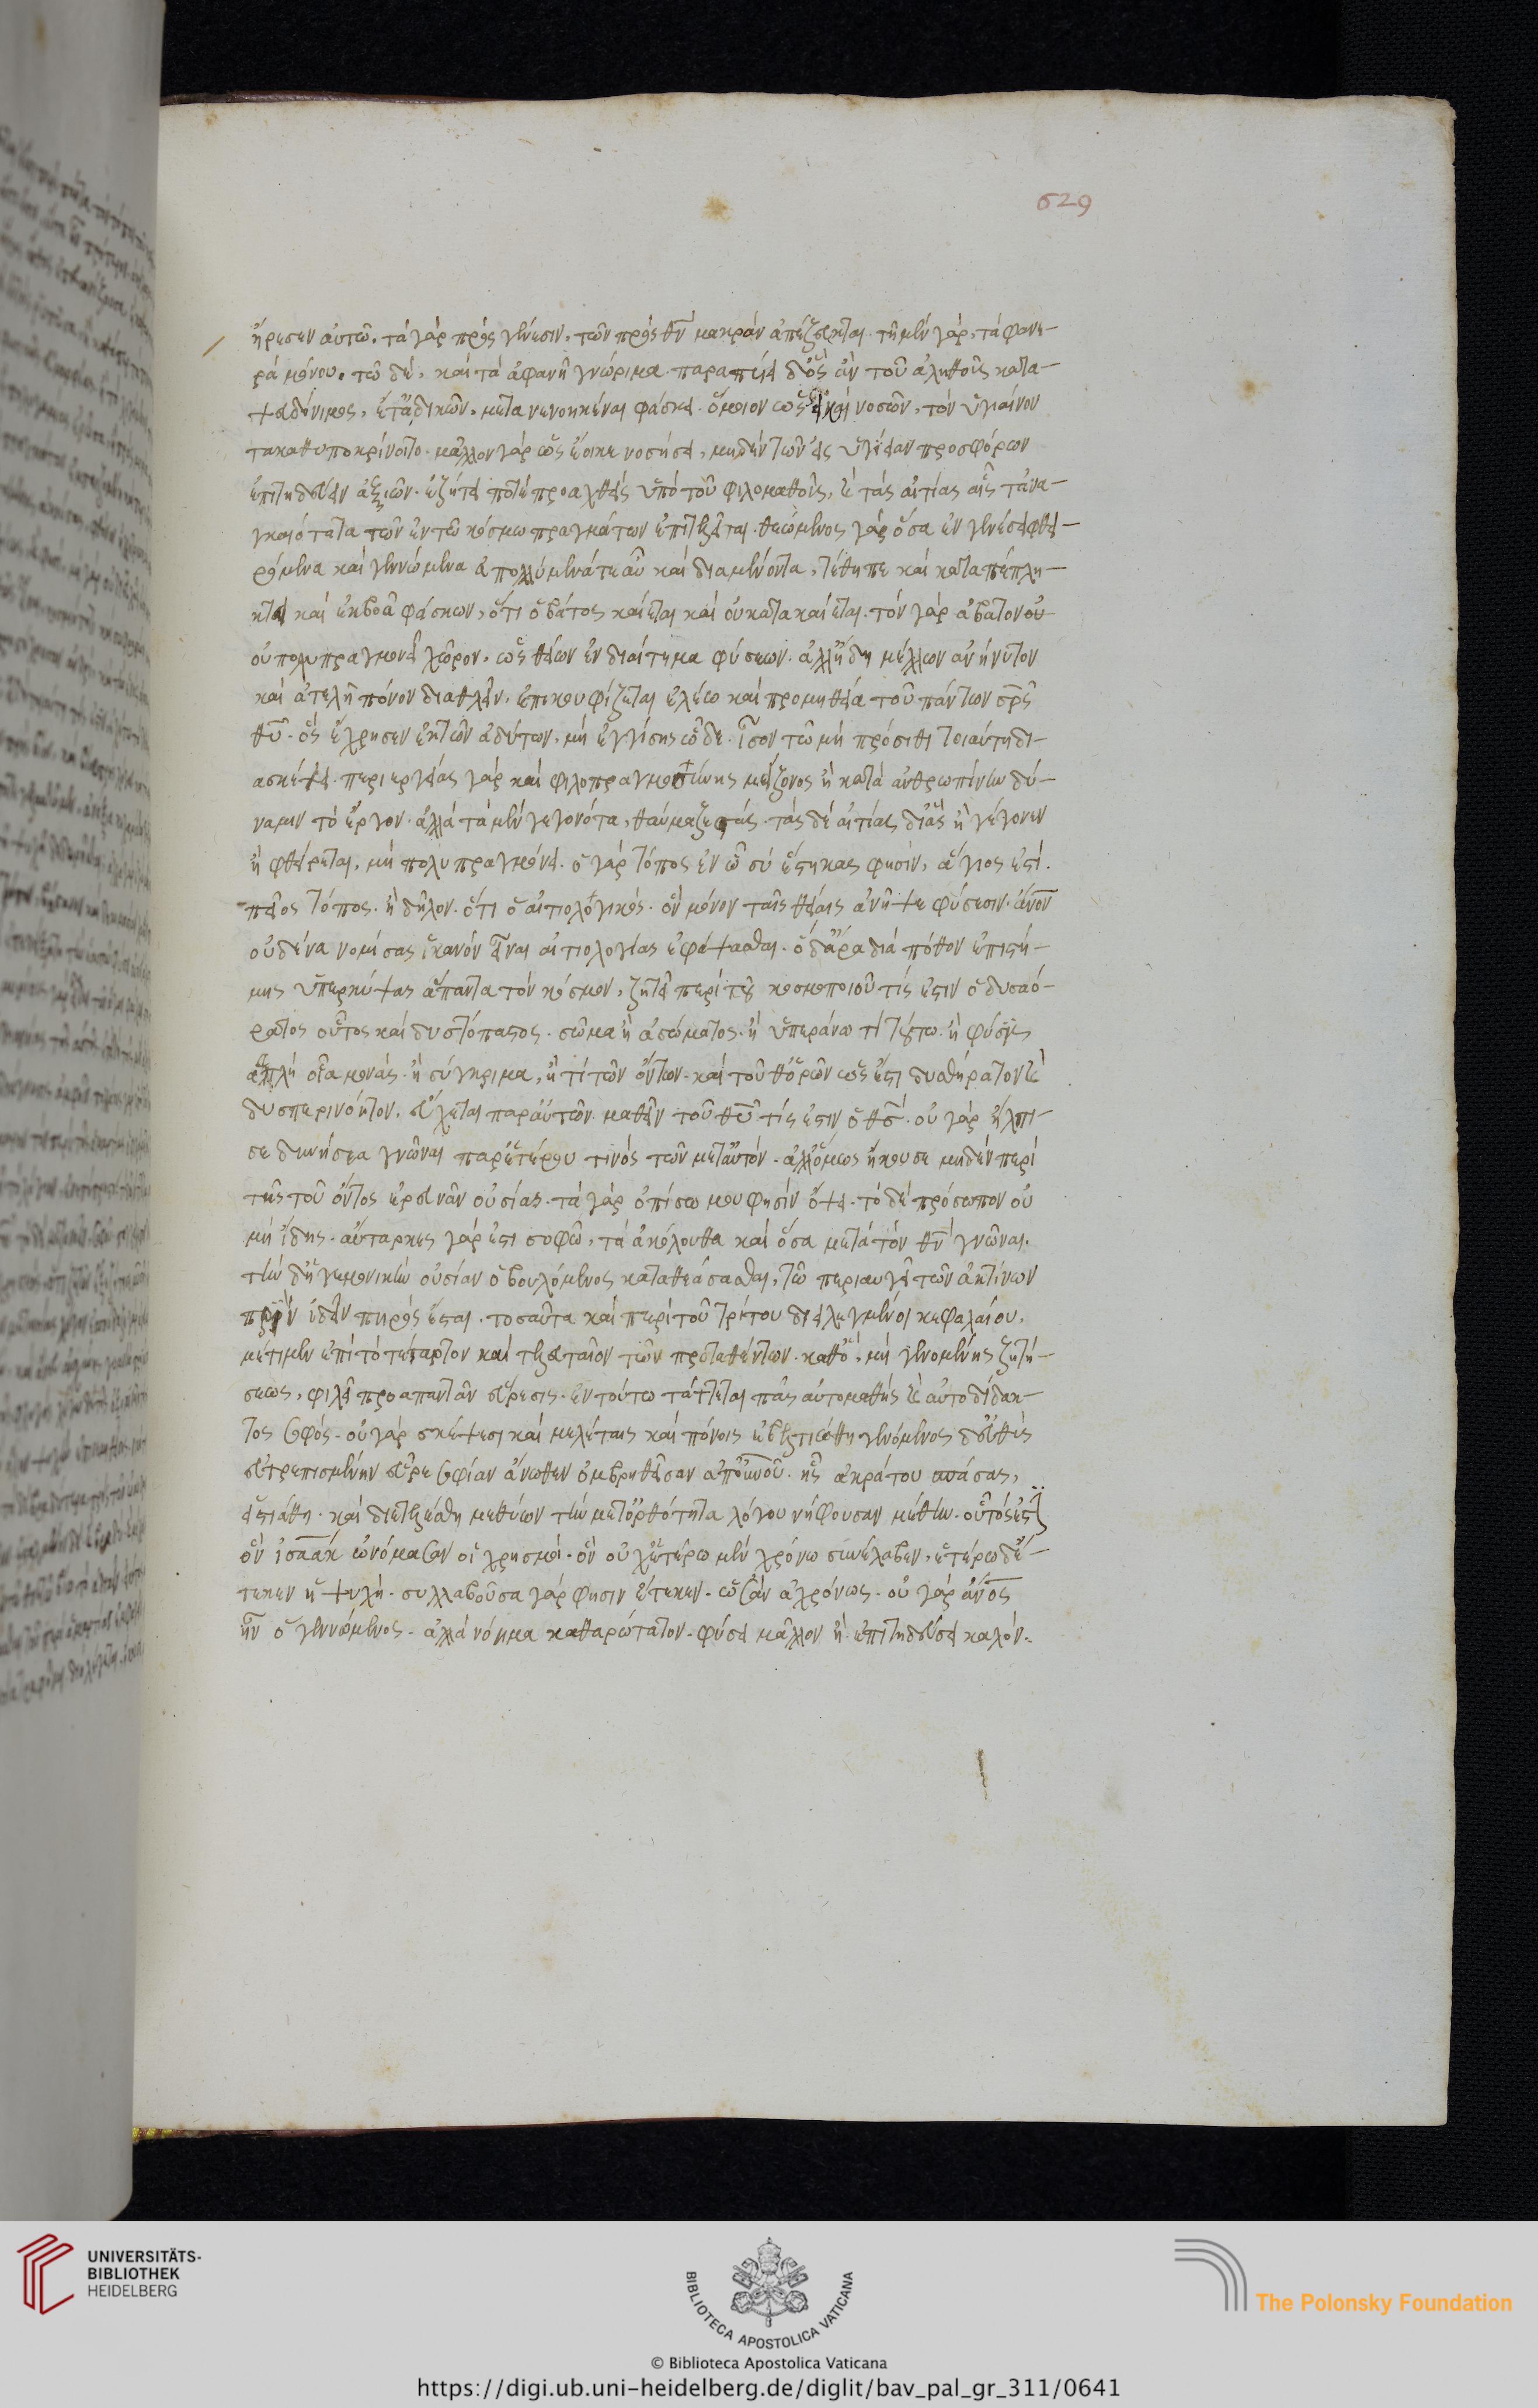 629
ήρεσεν αὐτῶ. τὰ γὰρ πρὸς γένεσιν, τῶν πρὸς θν̅ μακρὰν ἀπέζευκται. τῆ μὲν γὰρ, τὰ φανε-
ρὰ μόνον. τῶ δὲ, καὶ τὰ ἀφανῆ γνώριμα. παραπαίει δ' ὃς ἂν τοῦ ἀληθοῦς κατα-
ψευδόμενος, ἔτ' ἀδικῶν, μετανενοηκέναι φάσκει. ὅμοιον ὡς εἰ καὶ νοσῶν, τὸν ὑγιαίνον
τα καθυποκρίνοιτο. μᾶλλον γὰρ ὡς ἔοικε νοσήσει, μηδὲν τῶν εἰς ὑγείαν προσφόρων
ἐπιτηδεύειν ἀξιῶν. ἐζήτει ποτὲ προαχθεὶς ὑπὸ τοῦ φιλομαθοῦς, καὶ τὰς αἰτίας αἷς τἀνα-
γκαιότατα τῶν ἐν τῶ κόσμω πραγμάτων ἐπιτελεῖται. θεώμενος γὰρ ὅσα ἐν γενέσει φθει-
ρόμενα καὶ γεννώμενα ἀπολλύμενά τε αὖ καὶ διαμένοντα, τέθηπε καὶ καταπέπλη-
κται καὶ ἐκβοᾶ φάσκων, ὅτι ὁ βάτος καίεται καὶ οὐ κατακαίεται. τὸν γὰρ ἄβατον οὐ
οὐ πολυπραγμονεῖ χῶρον, ὡς θείων ἐνδιαίτημα φύσεων. ἀλλ' ἤδη μέλλων ἀνήνυτον
καὶ ἀτελῆ πόνον διαθλεῖν, ἐπικουφίζεται ἐλέω καὶ προμηθεία τοῦ πάντων σρ̅ς
θυ̅. ὃς ἔχρησεν ἐκ τῶν ἀδύτων, μὴ ἐγγίσης ὧδε. ἴσον τῶ μὴ πρόσιθι τοιαύτη δι-
ασκέψει. περιεργείας γὰρ καὶ φιλοπραγμοσύνης μείζονος ἢ κατὰ ἀνθρωπίνην δύ-
ναμιν τὸ ἔργον. ἀλλὰ τὰ μὲν γεγονότα, θαύμαζε. τὰς δὲ αἰτίας δι' ἃς ἢ γέγονεν
ἢ φθείρεται, μὴ πολυπραγμόνει. ὁ γὰρ τόπος ἐν ὧ σὺ ἕστηκας φησὶν, ἅγιος ἐστὶ.
ποῖος τόπος. ἢ δῆλον. ὅτι ὁ αἰτιολογικὸς. ὃν μόνον ταῖς θείαις ἀνῆψε φύσεσιν. ἀν̅ον
οὐδένα νομίσας ἱκανὸν εἶναι αἰτιολογίας ἐφάψασθαι. ὁ δ' ἄρα διὰ πόθον ἐπιστή-
μης ὑπερκύψας ἅπαντα τὸν κόσμον, ζητεῖ περὶ τοῦ κοσμοποιοῦ τίς ἐστιν ὁ δυσαό-
ρατος οὗτος καὶ δυστόπαστος. σῶμα ἢ ἀσώματος. ἢ ὑπεράνω τι τούτων. ἢ φύσις
ἁπλῆ οἷα μονὰς. ἢ σύγκριμα, ἢ τί τῶν ὄντων. καὶ τοῦθ' ὁρῶν ὡς ἔστι δυσθήρατον καὶ
δυσπερινόητον, εὔχεται παρ' αὐτοῦ μαθεῖν τοῦ θυ̅ τίς ἐστιν ὁ θσ̅. οὐ γὰρ ἤλπι-
σε δυνήσεσθαι γνῶναι παρ' ἑτέρου τινὸς τῶν μετ' αὐτόν. ἀλλ' ὅμως ἤκουσε μηδὲν περὶ
τῆς τοῦ ὄντος ἐρευνᾶν οὐσίας. τὰ γὰρ ὀπίσω μου φησὶν ὄψει. τὸ δὲ πρόσωπον οὐ
μὴ ἴδης. αὔταρκες γὰρ ἐστι σοφῶ, τὰ ἀκόλουθα καὶ ὅσα μετὰ τὸν θν̅ γνῶναι.
τὴν δ' ἡγεμονικὴν οὐσίαν ὁ βουλόμενος καταθεάσασθαι, τῶ περιαυγεῖ τῶν ἀκτίνων
πρὶν ἰδεῖν πηρὸς ἔσται. τοσαῦτα καὶ περὶ τοῦ τρίτου διειλεγμένοι κεφαλαίου,
μέτιμεν ἐπὶ τὸ τέταρτον καὶ τελευταῖον τῶν προταθέντων. καθ' ὃ, μὴ γενομένης ζητή-
σεως, φιλεῖ προαπαντᾶν εὕρεσις. ἐν τούτω τάττεται πᾶς αὐτομαθὴς καὶ αὐτοδίδακ-
τος σοφός. οὐ γὰρ σκέψεσι καὶ μελέταις καὶ πόνοις ἐβελτιώθη γενόμενος δ' εὐθὺς
εὐτρεπισμένην εὗρε σοφίαν ἄνωθεν ὀμβρηθεῖσαν ἀπ' οὐνοῦ. ἧς ἀκράτου σπάσας,
εἱστιάθη. καὶ διετελέσθη μεθύων τὴν μετ' ὀρθότητα λόγου νήφουσαν μέθην. οὗτός ἐστι
ὃν ἰσαὰκ ὠνόμασαν οἱ χρησμοὶ. ὃν οὐχ ἑτέρω μὲν χρόνω συνέλαβεν, ἑτέρω δ' ἔ-
τεκεν ἡ ψυχή. συλλαβοῦσα γὰρ φησιν ἔτεκεν. ὡς ἂν ἀχρόνως. οὐ γὰρ ἀν̅ος
ἦν ὁ γεννώμενος. ἀλλὰ νόημα καθαρώτατον. φύσει μᾶλλον ἢ ἐπιτηδεύσει καλόν.
UNIVERSITÄTS-
BIBLIOTHEK
HEIDELBERG
BIBLIOTECA APOSTOLICA VATICANA
The Polonsky Foundation
© Biblioteca Apostolica Vaticana
https://digi.ub.uni-heidelberg.de/diglit/bav_pal_gr_311/0641